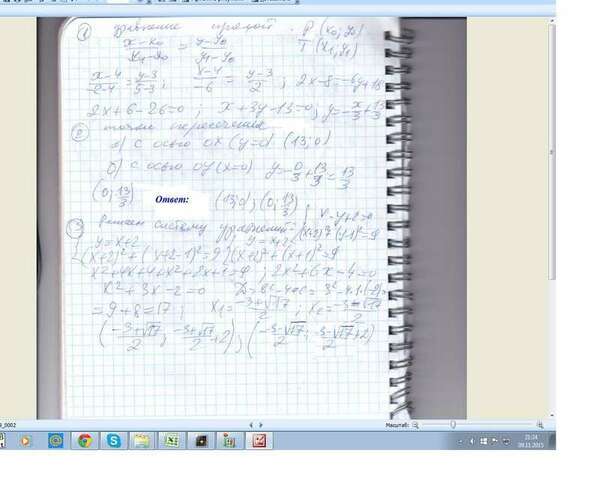 ① уравнение прямой. P (x₀; y₀)
(x-x₀)/(x₁-x₀) = (y-y₀)/(y₁-y₀) T (x₁, y₁)
(x-4)/(-2-4) = (y-3)/(5-3); (x-4)/(-6) = (y-3)/2; 2x-8=-6y+18
2x+6-26=0; x+3y-13=0; y=-x/3+13/3
② точки пересечения
а) с осью ox (y=0) (13; 0)
б) с осью oy (x=0) y=-0/3+13/3=13/3
(0; 13/3) Ответ: (13;0); (0; 13/3)
③ Решаем систему уравнений { x-y+2=0
(x+2)²+(y-1)²=9
{ y=x+2
(x+2)²+(x+2-1)²=9; y=x+2; (x+2)²+(x+1)²=9
x²+4x+4+x²+2x+1=9; 2x²+6x-4=0
x²+3x-2=0 D=b²-4ac=3²-4·1·(-2)=
=9+8=17; x₁=(-3+√17)/2; x₂=(-3-√17)/2
((-3+√17)/2; (-3+√17)/2+2); ((-3-√17)/2; (-3-√17)/2+2)
_0002
Масштаб:
21:24
09.11.2015